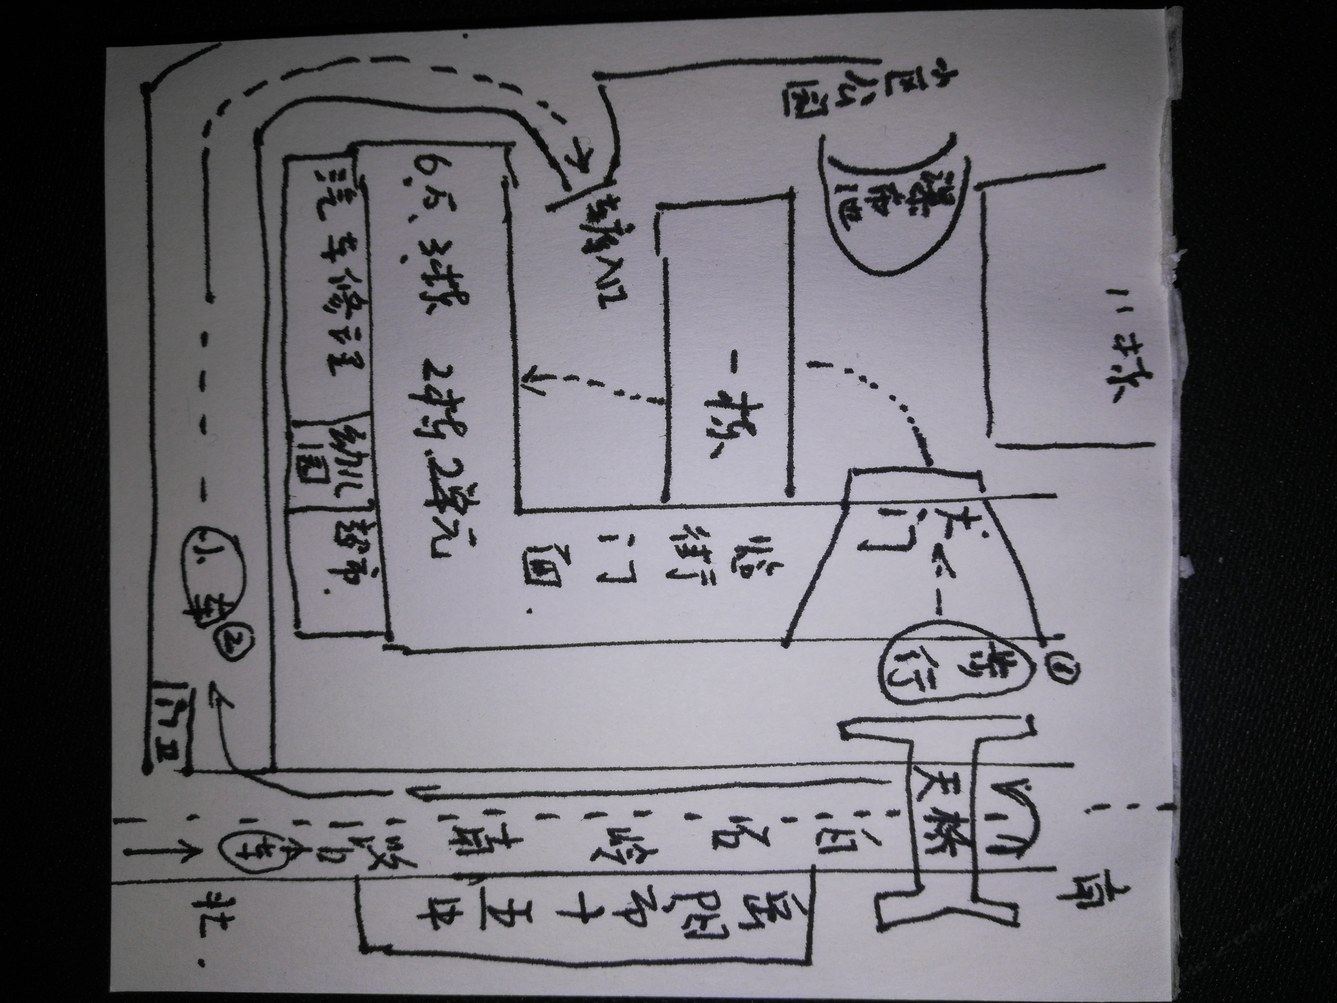 二栋
南
小区公园
瀑布
①
步行
大门
天桥
一栋
临街门面
车库入口
白石岭南路
岳阳市十五中
6、5、3栋 2栋2单元
汽车修理
幼儿园
超市
车
小车
②
门卫
北